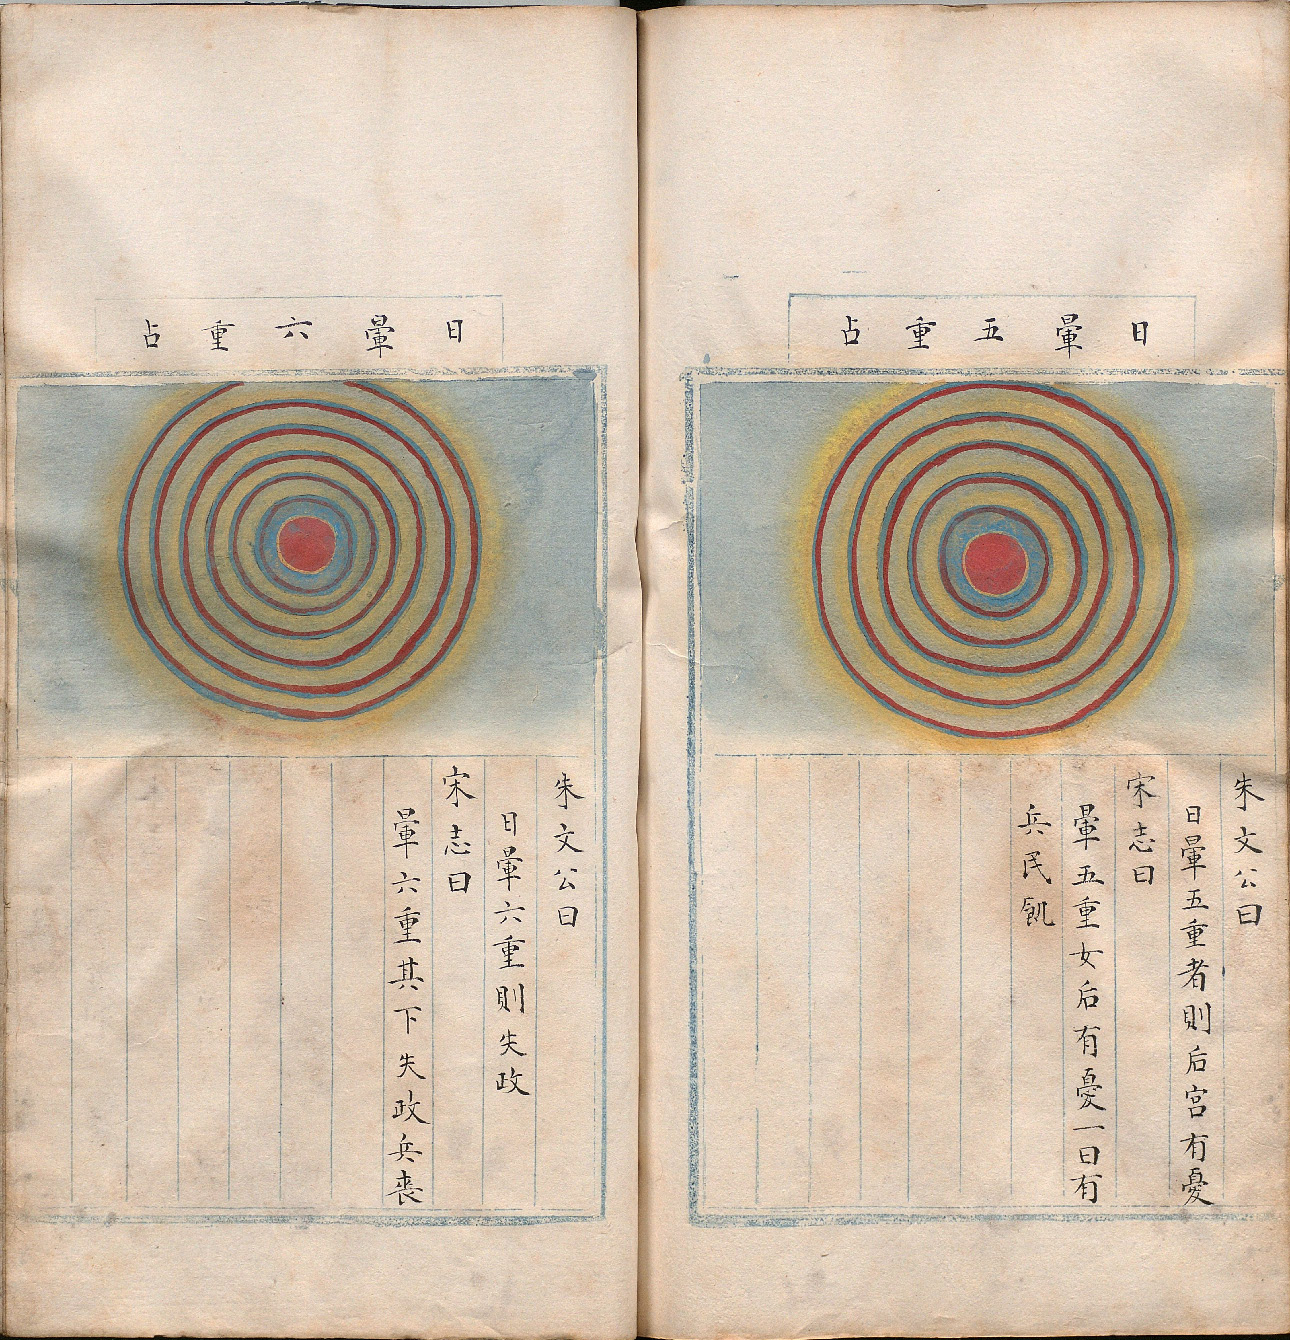 日暈五重占
朱文公曰
日暈五重者則后宮有憂
宋志曰
暈五重女后有憂一曰有
兵民飢
日暈六重占
朱文公曰
日暈六重則失政
宋志曰
暈六重其下失政兵喪